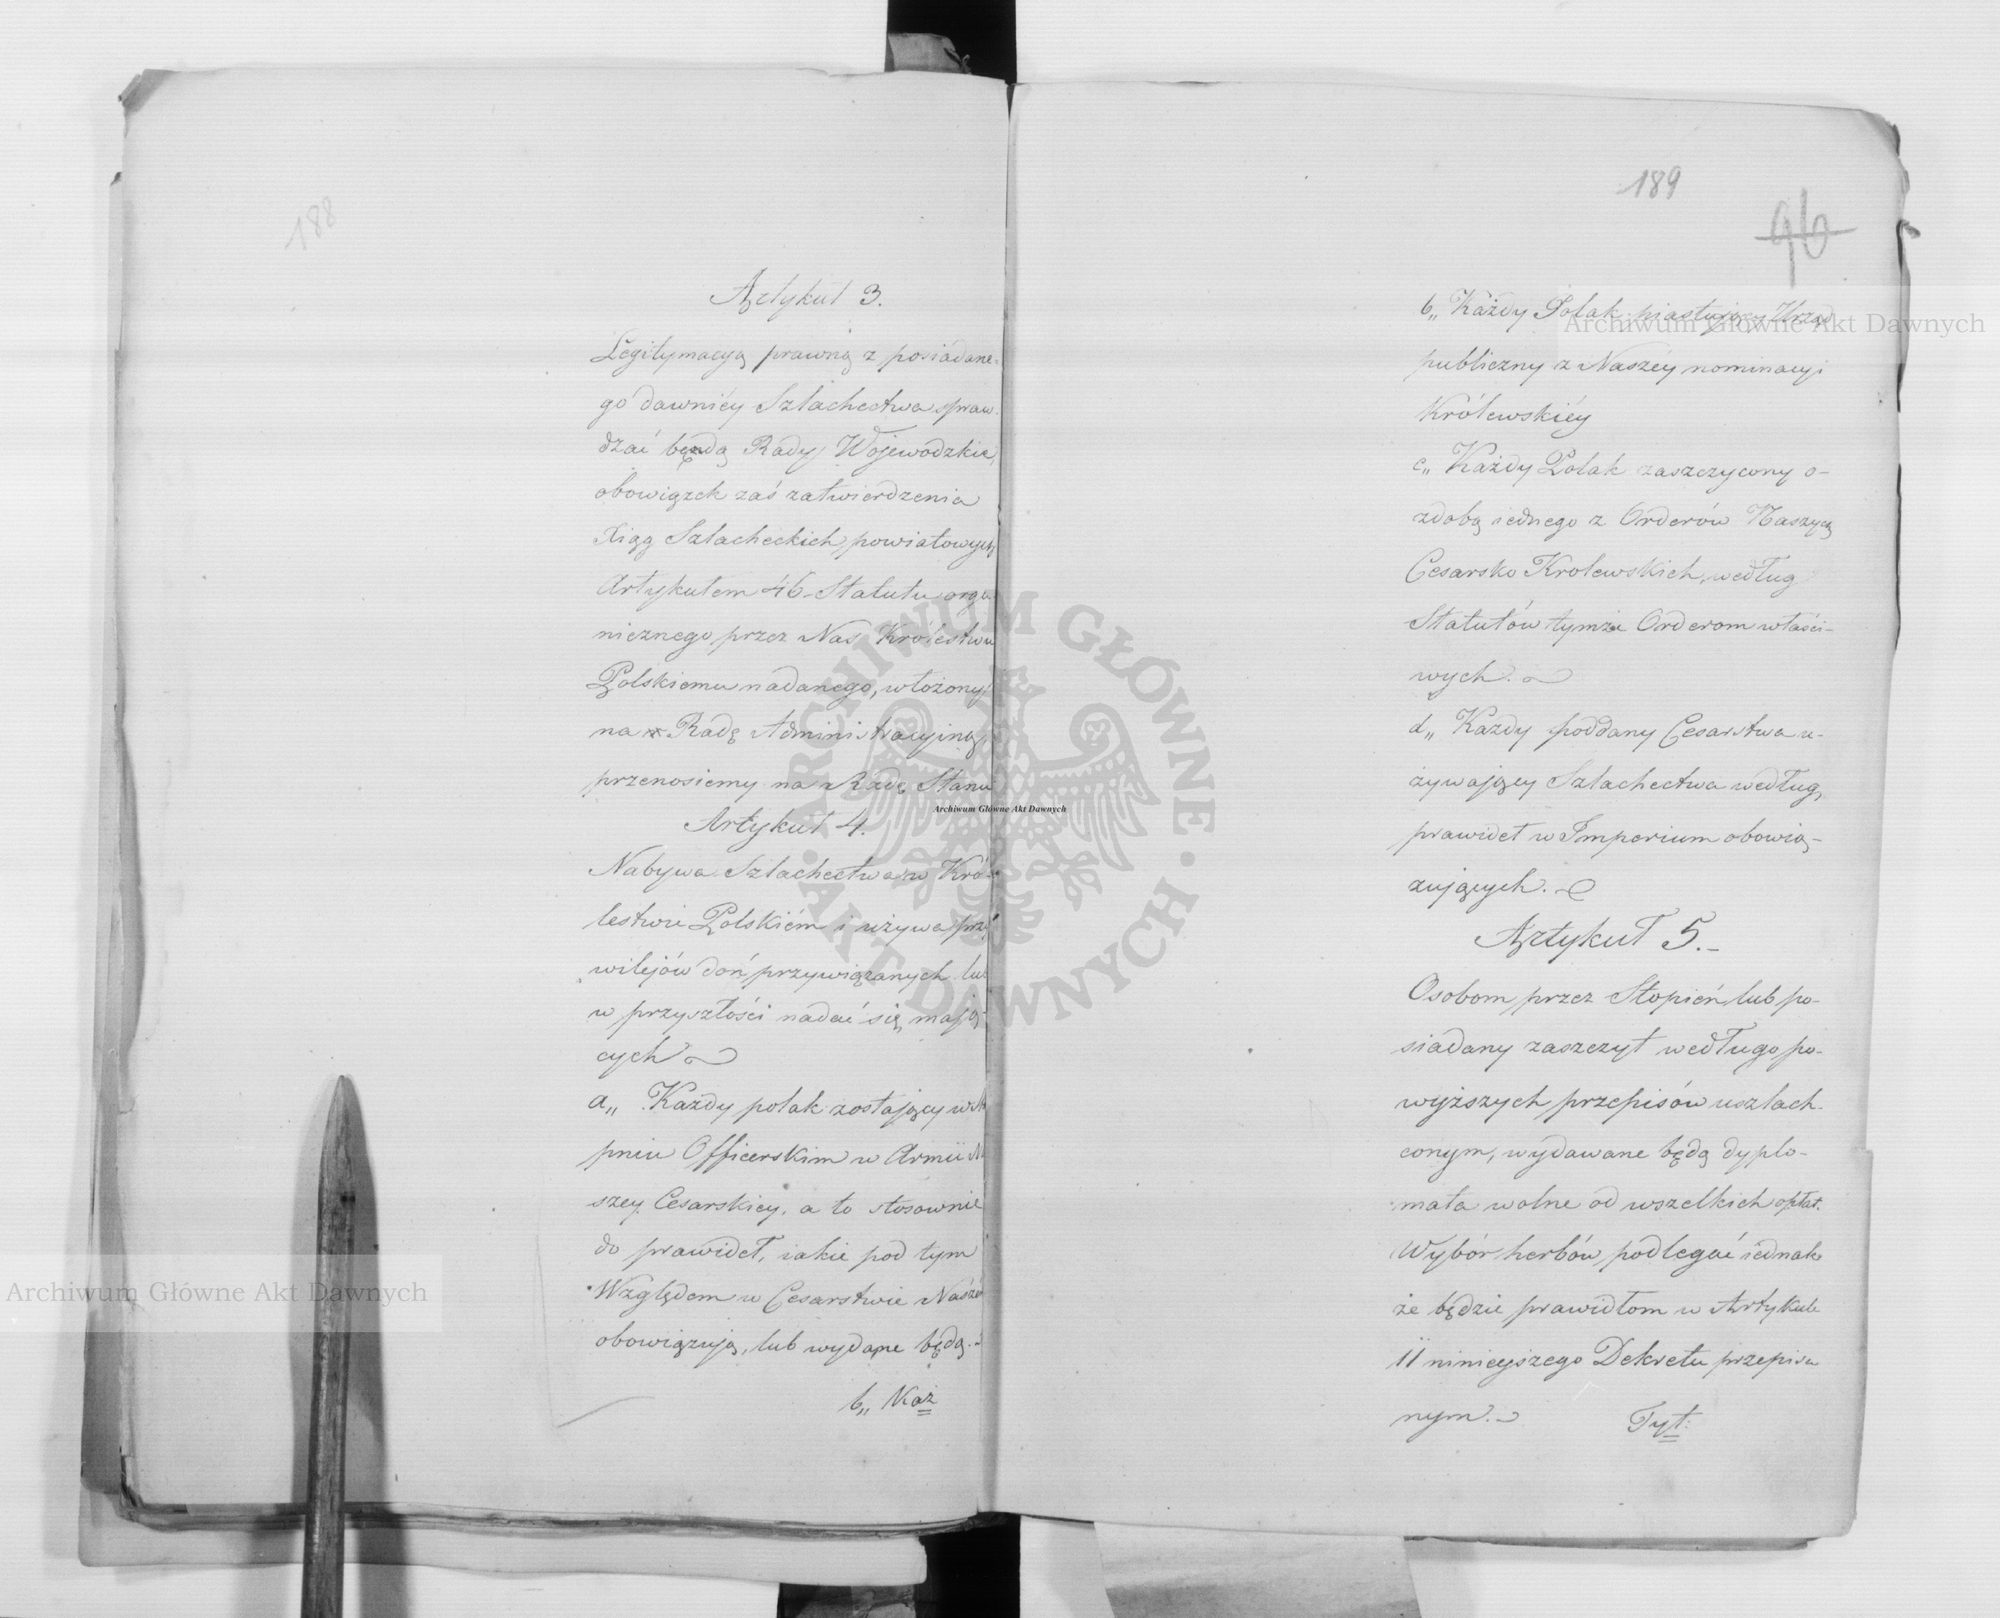 188
Artykuł 3.
Legitymacyą prawną z posiádane-
go dawniéy Szlachectwa spraw-
dzać będą Rady Wojewodzkie,
obowiązek zaś zatwierdzenia
Xiąg Szlacheckich powiatowych
Artykułem 46 Statutu orga-
nicznego przez Nas Królestwu
Polskiemu nadanego, włożony
na Radę Administracyiną,
przenosiemy na Radę Stanu
Artykuł 4.
Nabywa Szlachectwa w Kró-
lestwie Polskiém i używa przy
wilejów doń przywiązanych lub
w przyszłości nadać się mają-
cych
a„ Każdy polak zostający w sto
pniu Officerskim w Armii Na
szey Cesarskiey, a to stosownie
do prawideł, iakie pod tym
Względem w Cesarstwie Naszém
obowiązują, lub wydane będą.-
b„ Każ
189
96
b„ Każdy Polak piastujący Urząd
publiczny z Naszéy nominacyi
Królewskiéy
c„ Każdy Polak zaszczycony o-
zdobą iednego z Orderów Naszych
Cesarsko Krolewskich, według
Statutów tymże Orderom właści-
wych.
d„ Każdy poddany Cesarstwa u-
żywający Szlachectwa według
prawideł w Imperium obowią-
zujących.
Artykuł 5.-
Osobom przez Stopień lub po-
siadany zaszczyt według po-
wyższych przepisów uszlach-
conym, wydawane będą dyplo-
mata wolne od wszelkich opłat.
Wybór herbów podlegać iednak
że będzie prawidłom w Artykule
11 ninieyszego Dekretu przepisa
nym.-
Tyt:
Archiwum Główne Akt Dawnych
Archiwum Główne Akt Dawnych
Archiwum Główne Akt Dawnych
ARCHIWUM GŁÓWNE • AKT DAWNYCH •